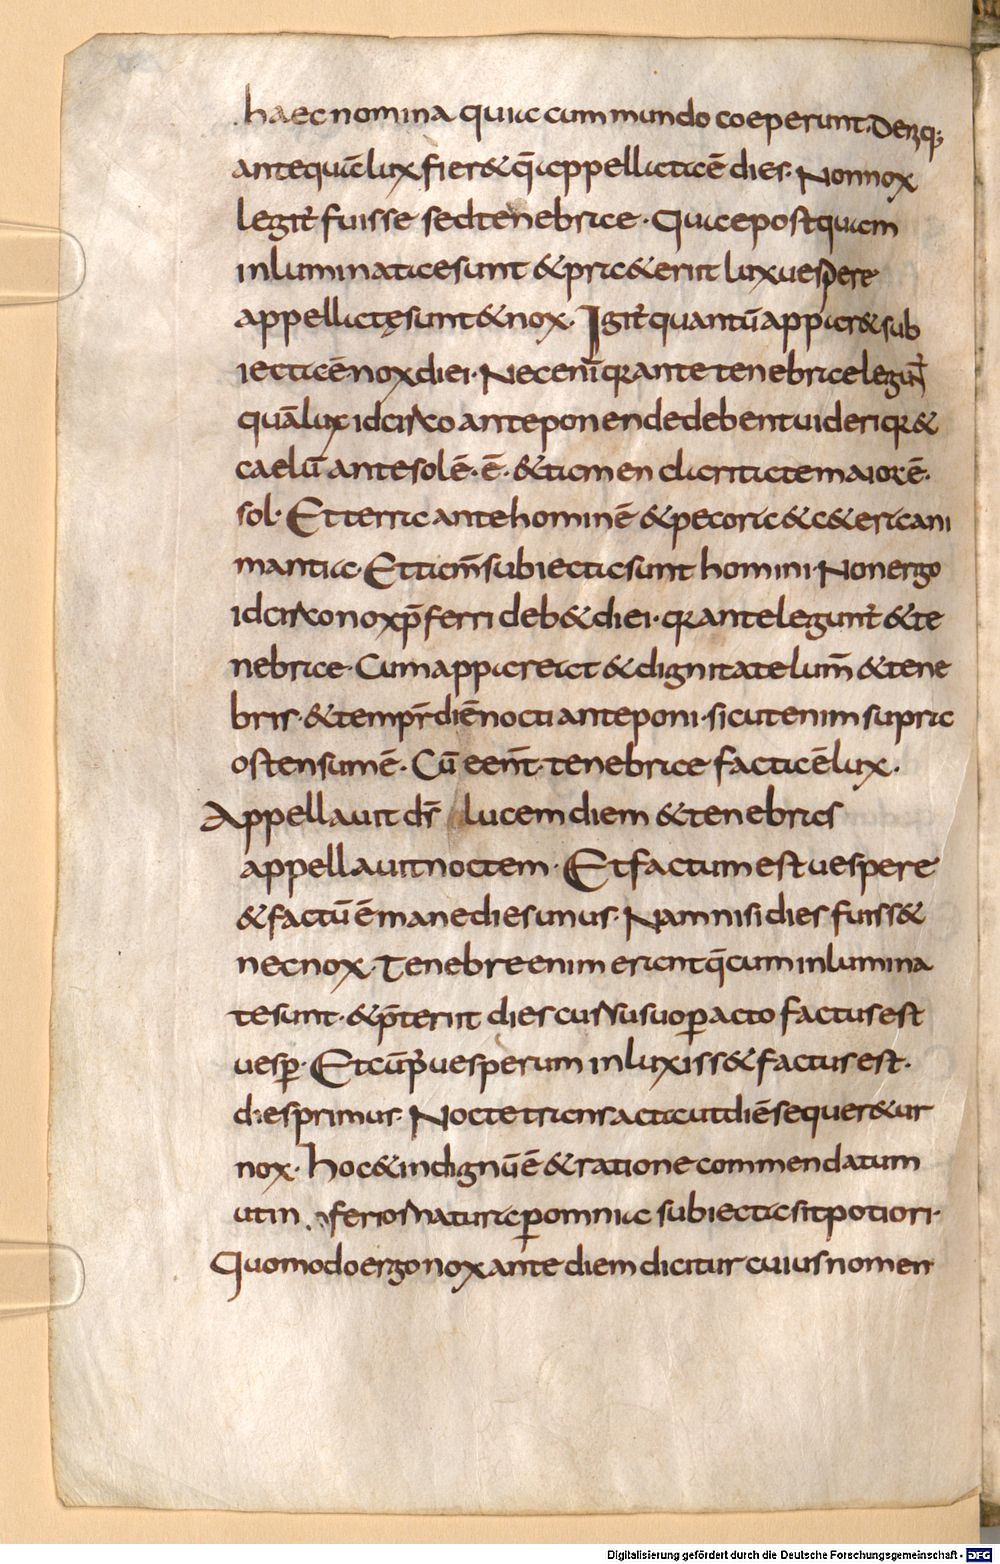 haec nomina quia cum mundo coeperunt. Deniq;
antequā lux fier& q̄ appellata ē dies. Non nox
legit̄ fuisse sed tenebrae. Quae postquam
inluminatae sunt & praeterit lux uespere
appellatę sunt & nox. Igit̄ quantū appar& sub
iecta ē nox diei. Nec enī qr ante tenebrae legunt̄
quā lux idcirco anteponende debent uideri qr &
caelū ante solē. ē. & tamen claritate maior ē.
sol. Et terra ante hominē & pecora & c&era ani
mantia. Et tam̄ subiecta sunt homini. Non ergo
idcirco nox p̄ferri deb& diei. qr ante legunt̄ & te
nebrae. Cum appareat & dignitate lum̄ & tene
bris. & tempr̄ diē nocti anteponi. sicut enim supra
ostensum ē. Cū eēnt̄. tenebrae facta ē lux.
Appellauit d̄s lucem diem & tenebras
appellauit noctem. Et factum est uespere
& factū ē mane dies unus. Nam nisi dies fuiss&
nec nox. Tenebre enim erant q̄ cum inlumina
te sunt. & p̄terit dies cursu suo ꝑacto factus est
uesꝑ. Et cū p̄ uesperum inluxiss& factus est.
dies primus. Nocte transacta ut diē sequer&ur
nox. hoc & in dignū ē & ratione commendatum
ut in ferior natura ꝑ omnia subiecta sit potiori.
Quomodo ergo nox ante diem dicitur cuius nomen
Digitalisierung gefördert durch die Deutsche Forschungsgemeinschaft - DFG